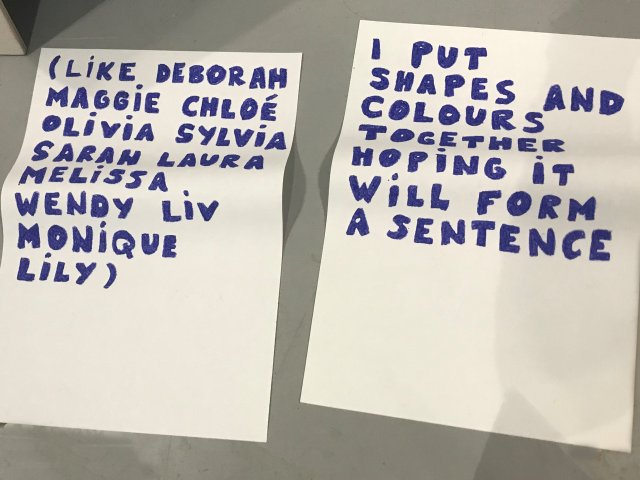 (LiKE DEBORAH
MAGGiE CHLOÉ
OLiViA SYLViA
SARAH LAURA
MELiSSA
WENDY LiV
MONiQUE
LiLY)
I PUT
SHAPES AND
COLOURS
TOGETHER
HOPiNG iT
WiLL FORM
A SENTENCE